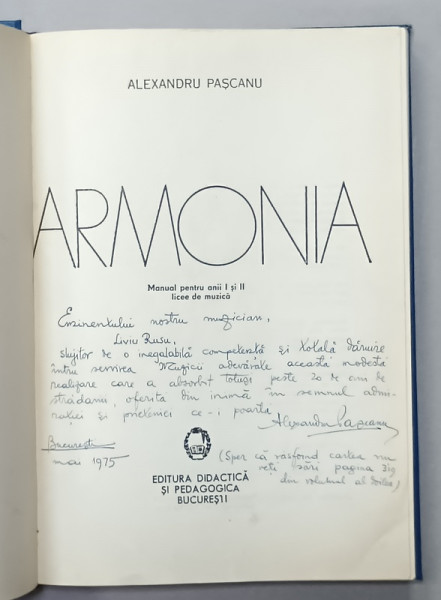 ALEXANDRU PAȘCANU
ARMONIA
Manual pentru anii I și II
licee de muzică
Eminentului nostru muzician,
Liviu Rusu,
slujitor de o inegalabilă competență și totală dăruire
întru servirea Muzicii adevărate această modestă
realizare care a absorbit totuși peste 20 de ani de
strădanii, oferită din inimă în semnul admi-
rației și prieteniei ce-i poartă
Alexandru Pașcanu
București
mai 1975
(Sper că răsfoind cartea nu
veți sări pagina 319
din volumul al doilea)
EDITURA DIDACTICĂ
ȘI PEDAGOGICA
BUCUREȘTI